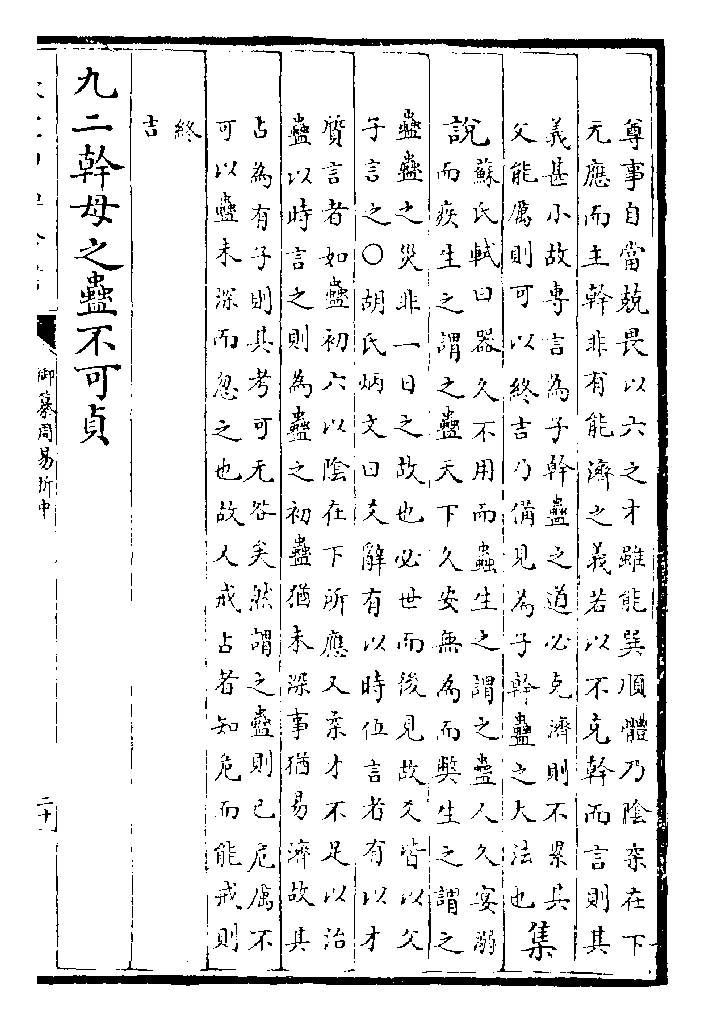 尊事自當兢畏以六之才雖能巽順體乃陰柔在下
无應而主幹非有能濟之義若以不克幹而言則其
義甚小故専言為子幹蠱之道必克濟則不累其
父能厲則可以終吉乃備見為子幹蠱之大法也 集
說 蘇氏軾曰器久不用而蟲生之謂之蠱人久宴溺
而疾生之謂之蠱天下久安無為而弊生之謂之
蠱蠱之災非一日之故也必世而後見故爻皆以父
子言之〇胡氏炳文曰爻辭有以時位言者有以才
質言者如蠱初六以陰在下所應又柔才不足以治
蠱以時言之則為蠱之初蠱猶未深事猶易濟故其
占為有子則其考可无咎矣然謂之蠱則已危厲不
可以蠱未深而忽之也故人戒占者知危而能戒則
終
吉
九二幹母之蠱不可貞
御纂周易折中
二十